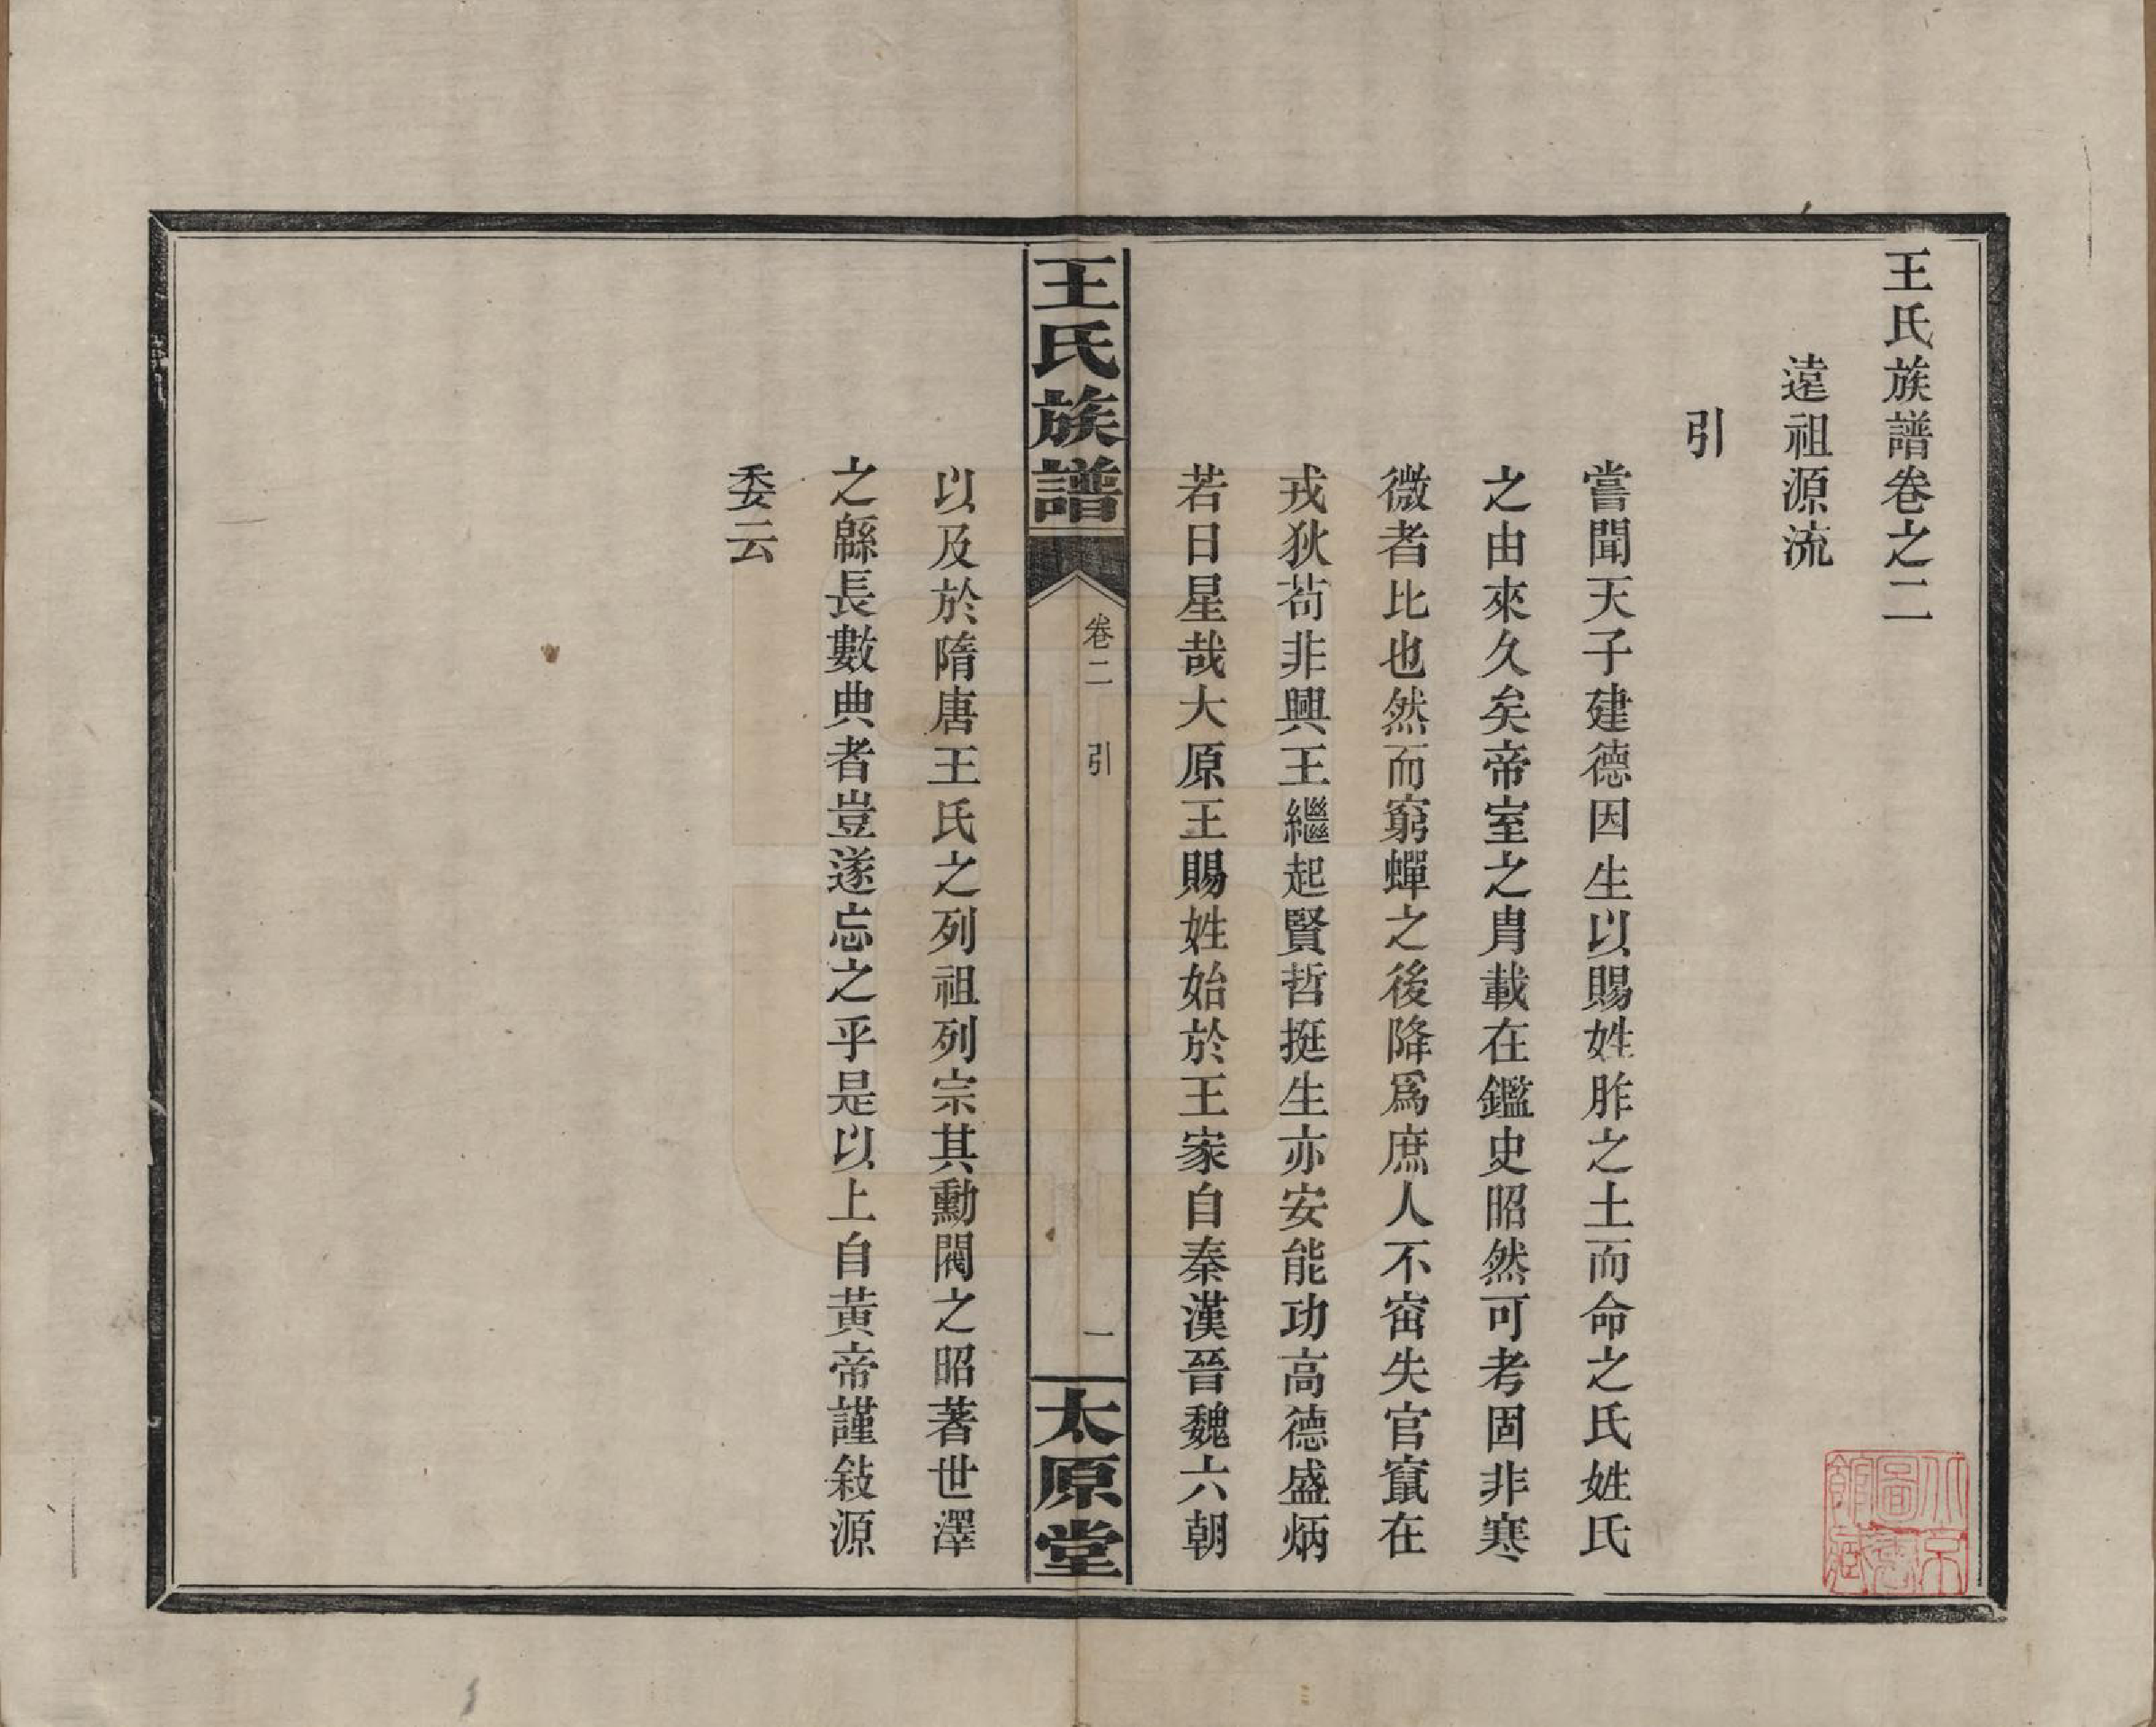 王氏族譜卷之二
遠祖源流
引
嘗聞天子建德因生以賜姓胙之土而命之氏姓氏
之由來久矣帝室之胄載在鑑史昭然可考固非寒
微者比也然而窮蟬之後降爲庶人不窋失官竄在
戎狄苟非興王繼起賢哲挺生亦安能功高德盛炳
若日星哉大原王賜姓始於王家自秦漢晉魏六朝
王氏族譜
卷二
引
一
太原堂
以及於隋唐王氏之列祖列宗其勳閥之昭著世澤
之緜長數典者豈遂忘之乎是以上自黃帝謹敍源
委云
北京
圖書
館藏